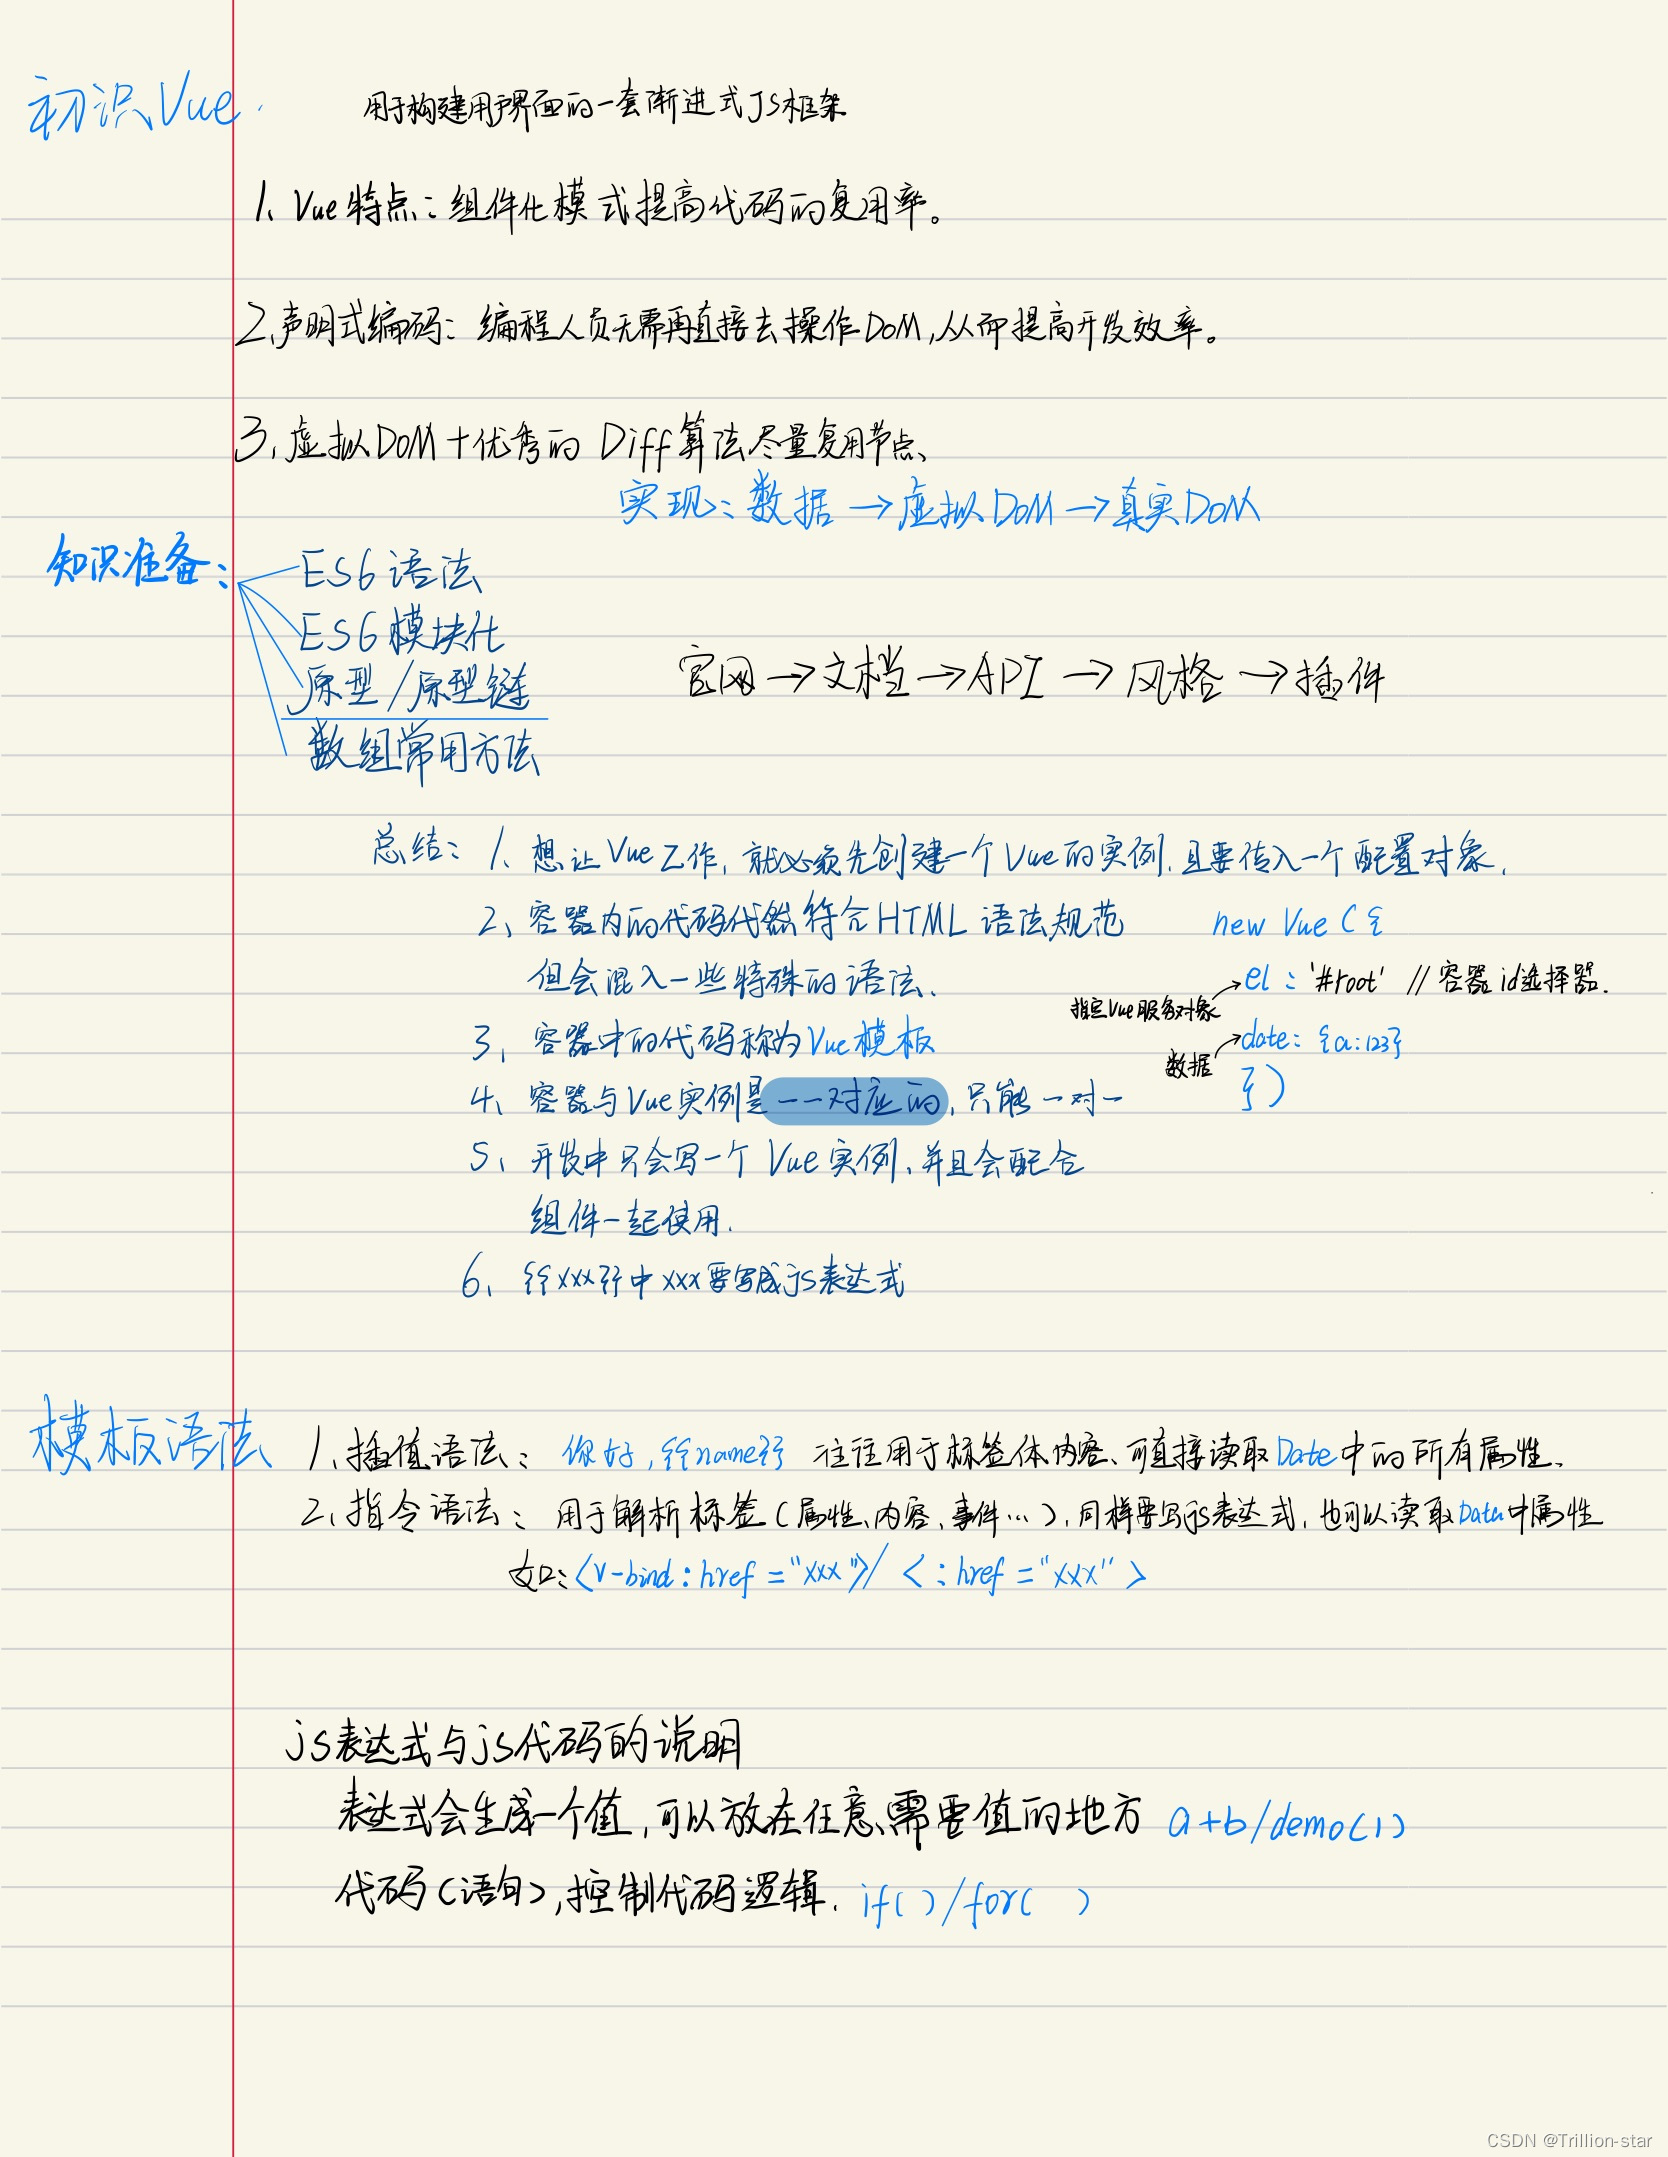 初识Vue.
用于构建用户界面的一套渐进式JS框架
1、Vue特点：组件化模式提高代码的复用率。
2、声明式编码：编程人员无需再直接去操作DOM,从而提高开发效率。
3、虚拟DOM+优秀的 Diff算法尽量复用节点、
实现：数据→虚拟DOM→真实DOM
知识准备：
ES6语法
ES6模块化
原型/原型链
数组常用方法
官网→文档→API→风格→插件
总结：1、想让Vue工作，就必须先创建一个Vue的实例.且要传入一个配置对象.
2、容器内的代码代然符合HTML语法规范
但会混入一些特殊的语法.
3、容器中的代码称为Vue模板
4、容器与Vue实例是一一对应的,只能一对一
5、开发中只会写一个Vue实例、并且会配合
组件一起使用.
6、{{xxx}}中xxx要写成js表达式
new Vue({
el：'#root' //容器id选择器.
指定Vue服务对象
date：{a:123}
数据
})
模板语法
1、插值语法：你好,{{name}} 往往用于标签体内容、可直接读取Date中的所有属性、
2、指令语法：用于解析标签(属性、内容、事件…),同样要写js表达式,也可以读取Data中属性
如：<v-bind:href="xxx">/ <:href="xxx">
js表达式与js代码的说明
表达式会生成一个值,可以放在任意需要值的地方 a+b/demo(1)
代码(语句),控制代码逻辑. if()/for( )
CSDN @Trillion-star